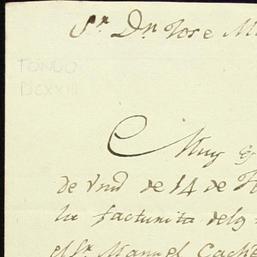 Sr. Dn. Jose M
FONDO
DCXXIII
Muy
de Vmd de 14 de
la facturita del
el Sr. Manuel Cache